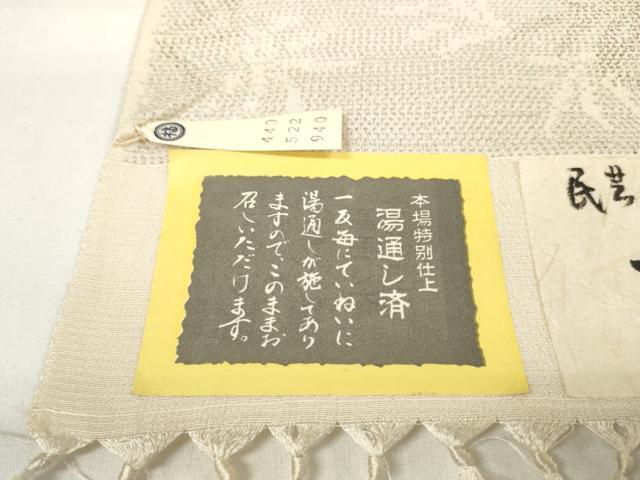 本場特別仕上
湯通し済
一反毎にていねいに
湯通しが施してあり
ますので、このままお
召しいただけます。
440
522
940
民芸